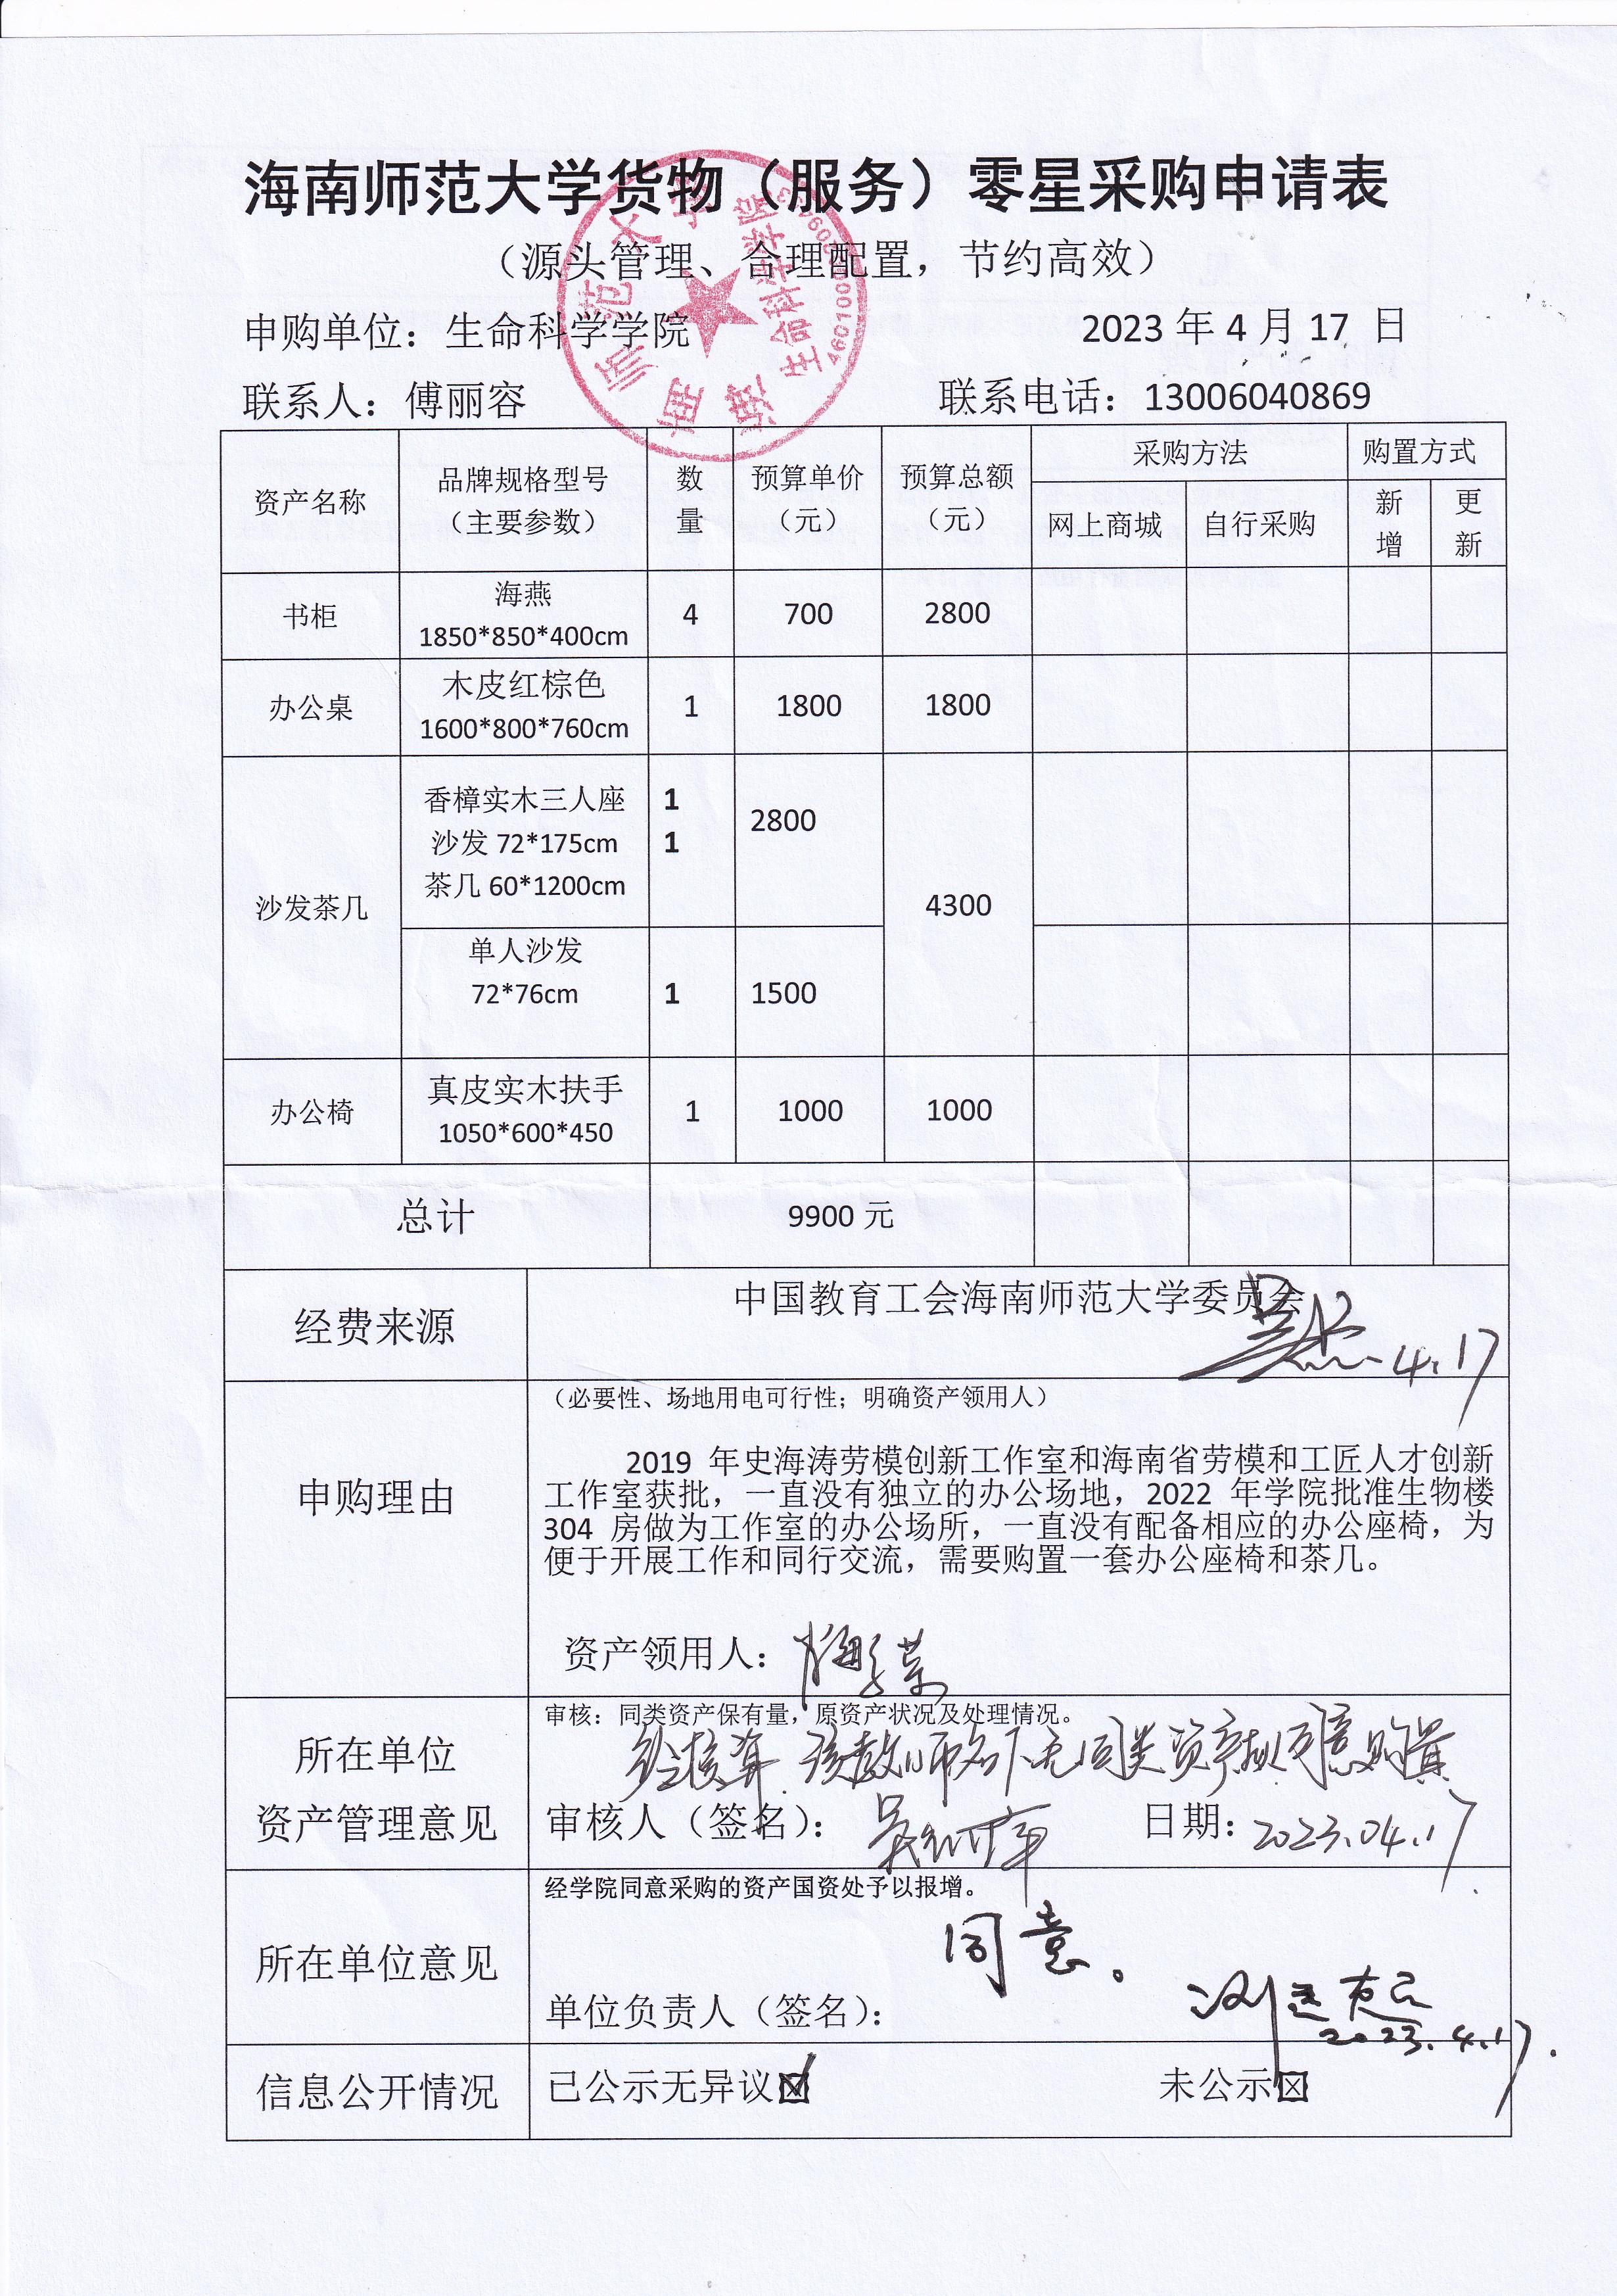 海南师范大学货物（服务）零星采购申请表
（源头管理、合理配置，节约高效）
申购单位：生命科学学院 2023 年 4 月 17 日
联系人：傅丽容 联系电话：13006040869
海南师范大学
生命科学学院
资产名称 品牌规格型号（主要参数） 数量 预算单价（元） 预算总额（元） 采购方法 购置方式
网上商城 自行采购 新增 更新
书柜 海燕 1850*850*400cm 4 700 2800
办公桌 木皮红棕色 1600*800*760cm 1 1800 1800
沙发茶几 香樟实木三人座 1 2800 4300
沙发 72*175cm 1
茶几 60*1200cm
单人沙发
72*76cm 1 1500
办公椅 真皮实木扶手 1050*600*450 1 1000 1000
总计 9900 元
经费来源 中国教育工会海南师范大学委员会
4.17
申购理由 （必要性、场地用电可行性；明确资产领用人）
2019 年史海涛劳模创新工作室和海南省劳模和工匠人才创新
工作室获批，一直没有独立的办公场地，2022 年学院批准生物楼
304 房做为工作室的办公场所，一直没有配备相应的办公座椅，为
便于开展工作和同行交流，需要购置一套办公座椅和茶几。
资产领用人：
所在单位
资产管理意见
审核：同类资产保有量，原资产状况及处理情况。
经核算，该教师名下无同类资产拟同意购置
审核人（签名）： 日期：2023.04.17
所在单位意见 经学院同意采购的资产国资处予以报增。
同意。
单位负责人（签名）：
2023.4.17.
信息公开情况 已公示无异议☒ 未公示☒